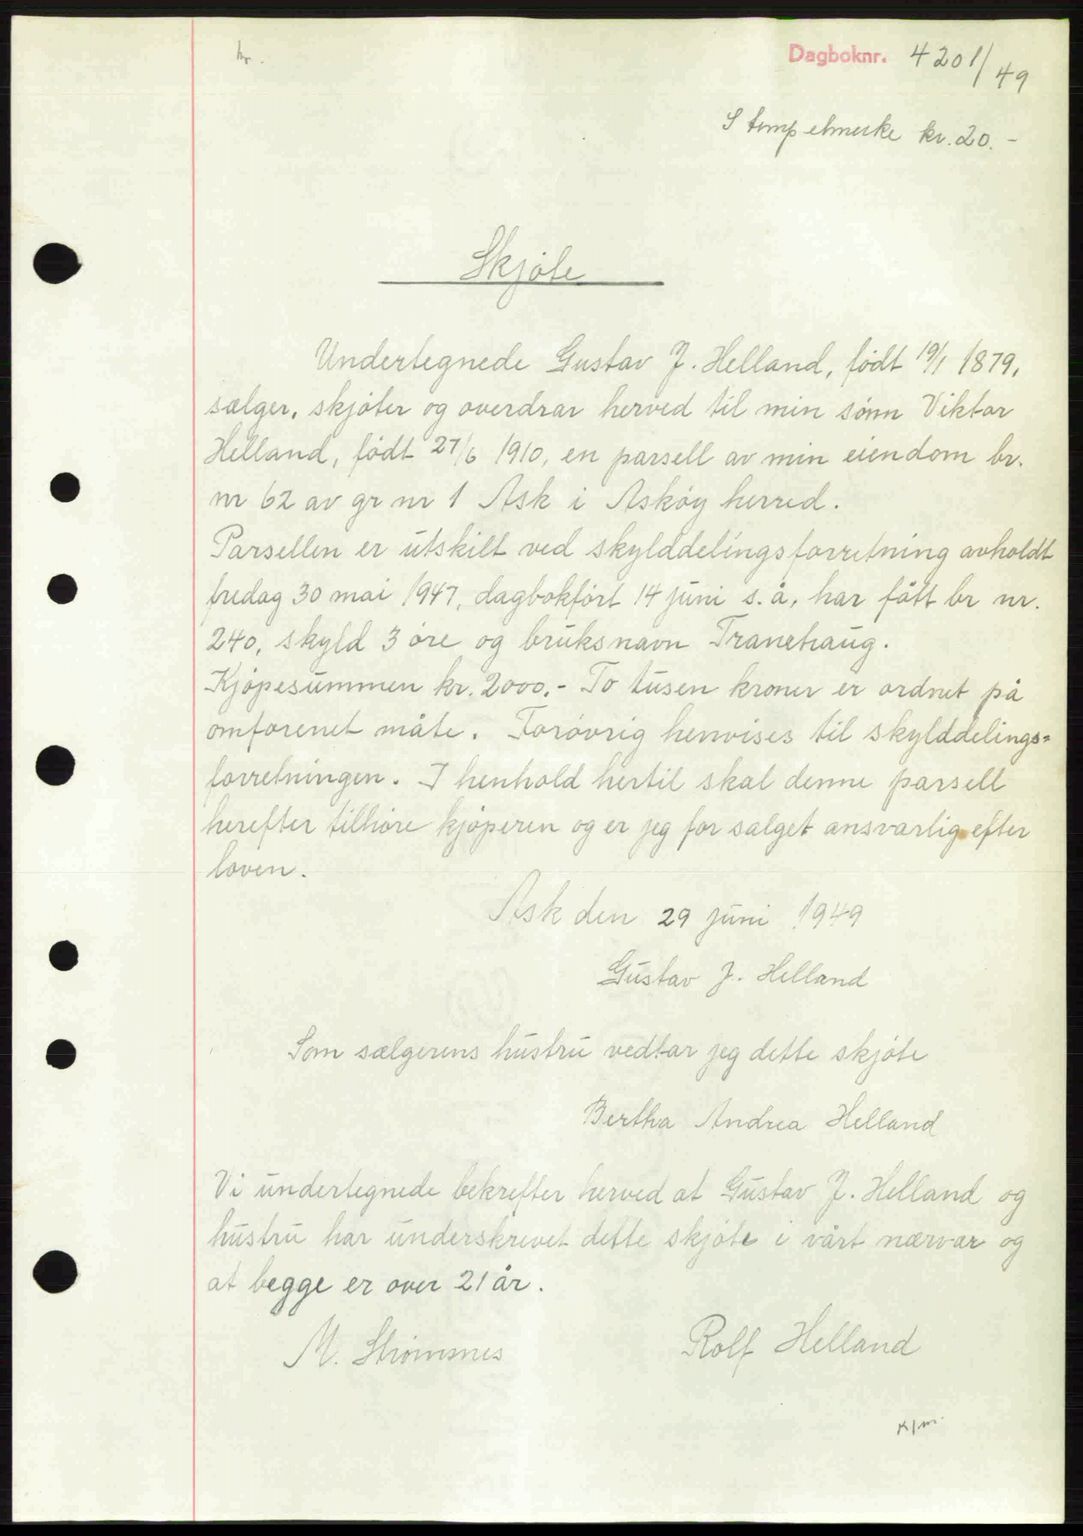 hr.
Dagboknr. 4201/49
Stempelmerke kr. 20. -
Skjöte
Undertegnede Gustav J. Helland, födt 19/1 1879,
sælger, skjöter og overdrar herved til min sönn Viktor
Helland, födt 27/6 1910, en parsell av min eiendom br.
nr 62 av gr nr 1 Ask i Asköy herred.
Parsellen er utskilt ved skylddelingsforretning avholdt
fredag 30 mai 1947, dagbokfört 14 juni s. å, har fått br nr.
240, skyld 3 öre og bruksnavn Tranehaug.
Kjöpesummen kr. 2000.- To tusen kroner er ordnet på
omforenet måte. Forövrig henvises til skylddelings-
forretningen. I henhold hertil skal denne parsell
herefter tilhöre kjöperen og er jeg for salget ansvarlig efter
loven.
Ask den 29 juni 1949
Gustav J. Helland
Som sælgerens hustru vedtar jeg dette skjöte
Bertha Andrea Helland
Vi undertegnede bekrefter herved at Gustav J. Helland og
hustru har underskrevet dette skjöte i vårt nærvær og
at begge er over 21 år.
M. Strömsnes Rolf Helland